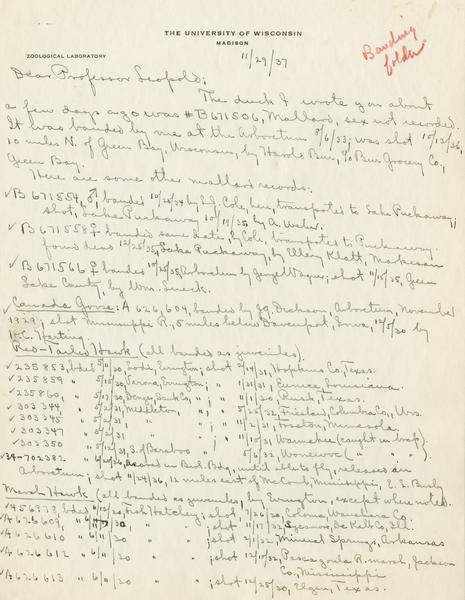 THE UNIVERSITY OF WISCONSIN
MADISON
ZOOLOGICAL LABORATORY
Banding
folder
11/29/37
Dear Professor Leopold:
The duck I wrote you about
a few days ago was #B671506, Mallard, sex not recorded.
It was banded by me at the Arboretum 8/6/33; was shot 10/12/36,
10 miles N. of Green Bay, Wisconsin, by Harold Bur, % Bur Grocery Co.,
Green Bay.
Here are some other mallard records:
✓B 671554, ♂, banded 10/25/34 by L.J. Cole, here, transported to Lake Puckaway;
shot, Lake Puckaway 10/19/35 by A. Weber.
✓B 671558 ♀ banded same date, by Cole, transported to Puckaway.
found dead 12/25/35, Lake Puckaway, by Ellery Klatt, Markesan
✓B 671566 ♀ banded 10/25/35, Arboretum by George Wagner; shot 11/15/35, Green
Lake County, by Wm. Lueck.
✓Canada Goose: A 626,609, banded by J.G. Dickson, Arboretum, November
1929; shot Mississippi R, 5 miles below Davenport, Iowa, 12/5/30 by
H.C. Harting.
Red-Tailed Hawk (all banded as juveniles).
✓235853, bded 5/11/30, Lodi, Errington; shot 2/14/31, Hopkins Co, Texas.
✓235859 " 5/15/30, Verona, Errington; " 1/31/31, Eunice, Louisiana.
✓235860, " 5/17/30, Sauk Co., " ; " 1/11/31, Rusk, Texas.
✓303344, " 5/2/31, Middleton, " ; " 5/25/32, Friesland, Columbia Co., Wis.
✓303345 " 5/2/31 " " ; " 11/2/31, Froston, Minnesota.
✓303347 " 5/2/31 " " ; " 11/10/31 Waunakee (caught in trap).
✓303350 " 5/2/31, S. of Baraboo " ; " 5/6/32, Wonewoc ( " " " ).
✓34-702382 " 6/20/36, in Biol. Bldg, until able to fly, released on
Arboretum; shot 11/24/36, 12 miles east of McComb, Mississippi, E.E. Busby
Marsh Hawk (all banded as juveniles by Errington, except where noted.
✓456978, bded 6/12/30, Fish Hatchery; shot 7/26/30, Coloma, Waushara Co.
✓A626609, " 6/11/30 " " ; shot 11/17/32, Sycamore, De Kalb Co., Ill.
✓A626610 " 6/11/30 " " ; shot 2/1/32, Mineral Springs, Arkansas
✓A626612 " 6/11/30 " " ; shot 12/10/32, Pascagoula R. marsh, Jackson
Co., Mississippi
✓A626613 " 6/11/30 " " ; shot 12/25/30, Elgin, Texas.